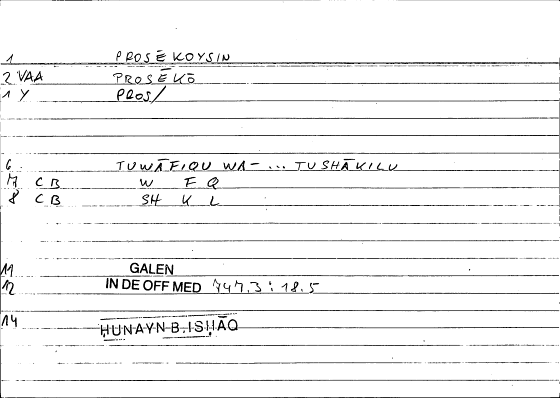 1 PROSĒKOYSIN
2 VAA PROSĒKŌ
1 Y PROS/
6 TUWĀFIQU WA- ... TUSHĀKILU
7 CB W F Q
8 CB SH K L
11 GALEN
12 IN DE OFF MED 747.3 : 18.5
14 ḤUNAYN B. ISḤĀQ